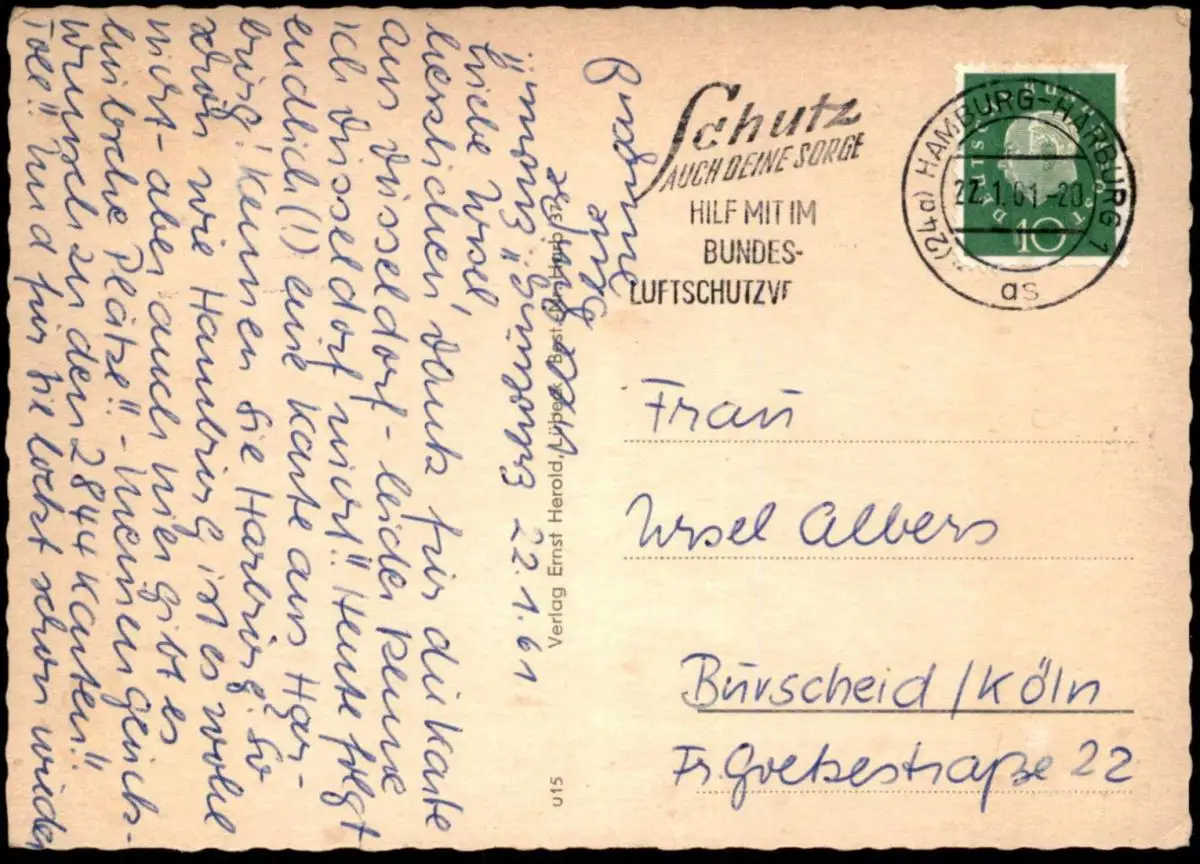 22.1.61
Liebe Ursel,
herzlichen Dank für die Karte
aus Düsseldorf - leider kenne
ich Düsseldorf nicht!! Heute folgt
endlich(!) eine Karte aus Har-
burg! Kennen Sie Harburg? So
schön wie Hamburg ist es wohl
nicht - aber auch hier gibt es
hübsche Plätze!! - Meinen Glück-
wunsch zu den 2844 Karten!!
Toll!! Und für Sie lockt schon wieder
Verlag Ernst Herold, Lübeck
u15
Schutz
AUCH DEINE SORGE
HILF MIT IM
BUNDES-
LUFTSCHUTZVE
(24a) HAMBURG-HARBURG 1
22.1.61-20
as
DEUTSCHE BUNDESPOST
10
Frau
Ursel Albers
Burscheid/Köln
Fr. Goetzestraße 22